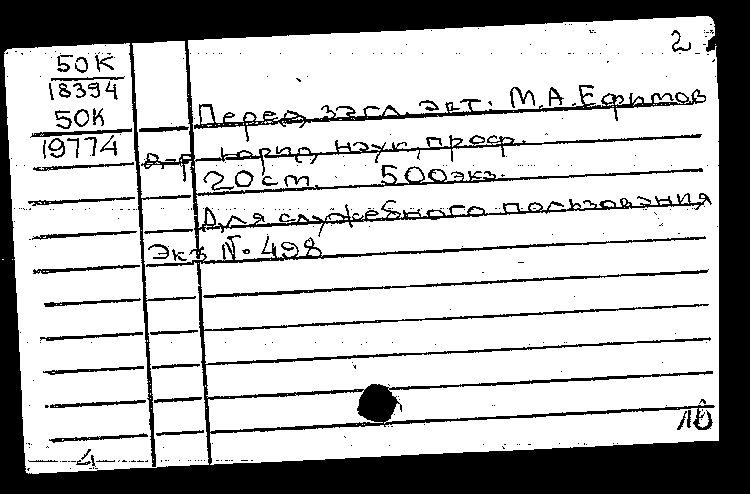 2
50К
18394
50К
19774
Перед загл. авт.: М.А.Ефимов
д-р юрид наук, проф.
20см. 500экз.
Для служебного пользования
Экз №498
4